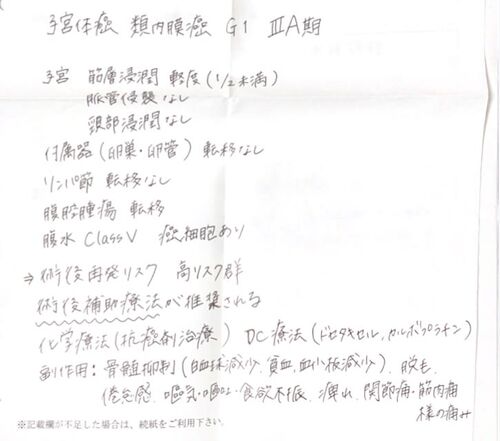 子宮体癌 類内膜癌 G1 ⅢA期
子宮 筋層浸潤 軽度(1/2未満)
脈管侵襲なし
頸部浸潤なし
付属器(卵巣・卵管)転移なし
リンパ節 転移なし
腹腔腫瘍 転移
腹水 Class V 癌細胞あり
⇒ 術後再発リスク 高リスク群
術後補助療法が推奨される
化学療法(抗癌剤治療) DC療法(ドセタキセル、カルボプラチン)
副作用:骨髄抑制(白血球減少、貧血、血小板減少)、脱毛、
倦怠感、嘔気・嘔吐・食欲不振、痺れ、関節痛・筋肉痛
様の痛み
※記載欄が不足した場合は、続紙をご利用下さい。